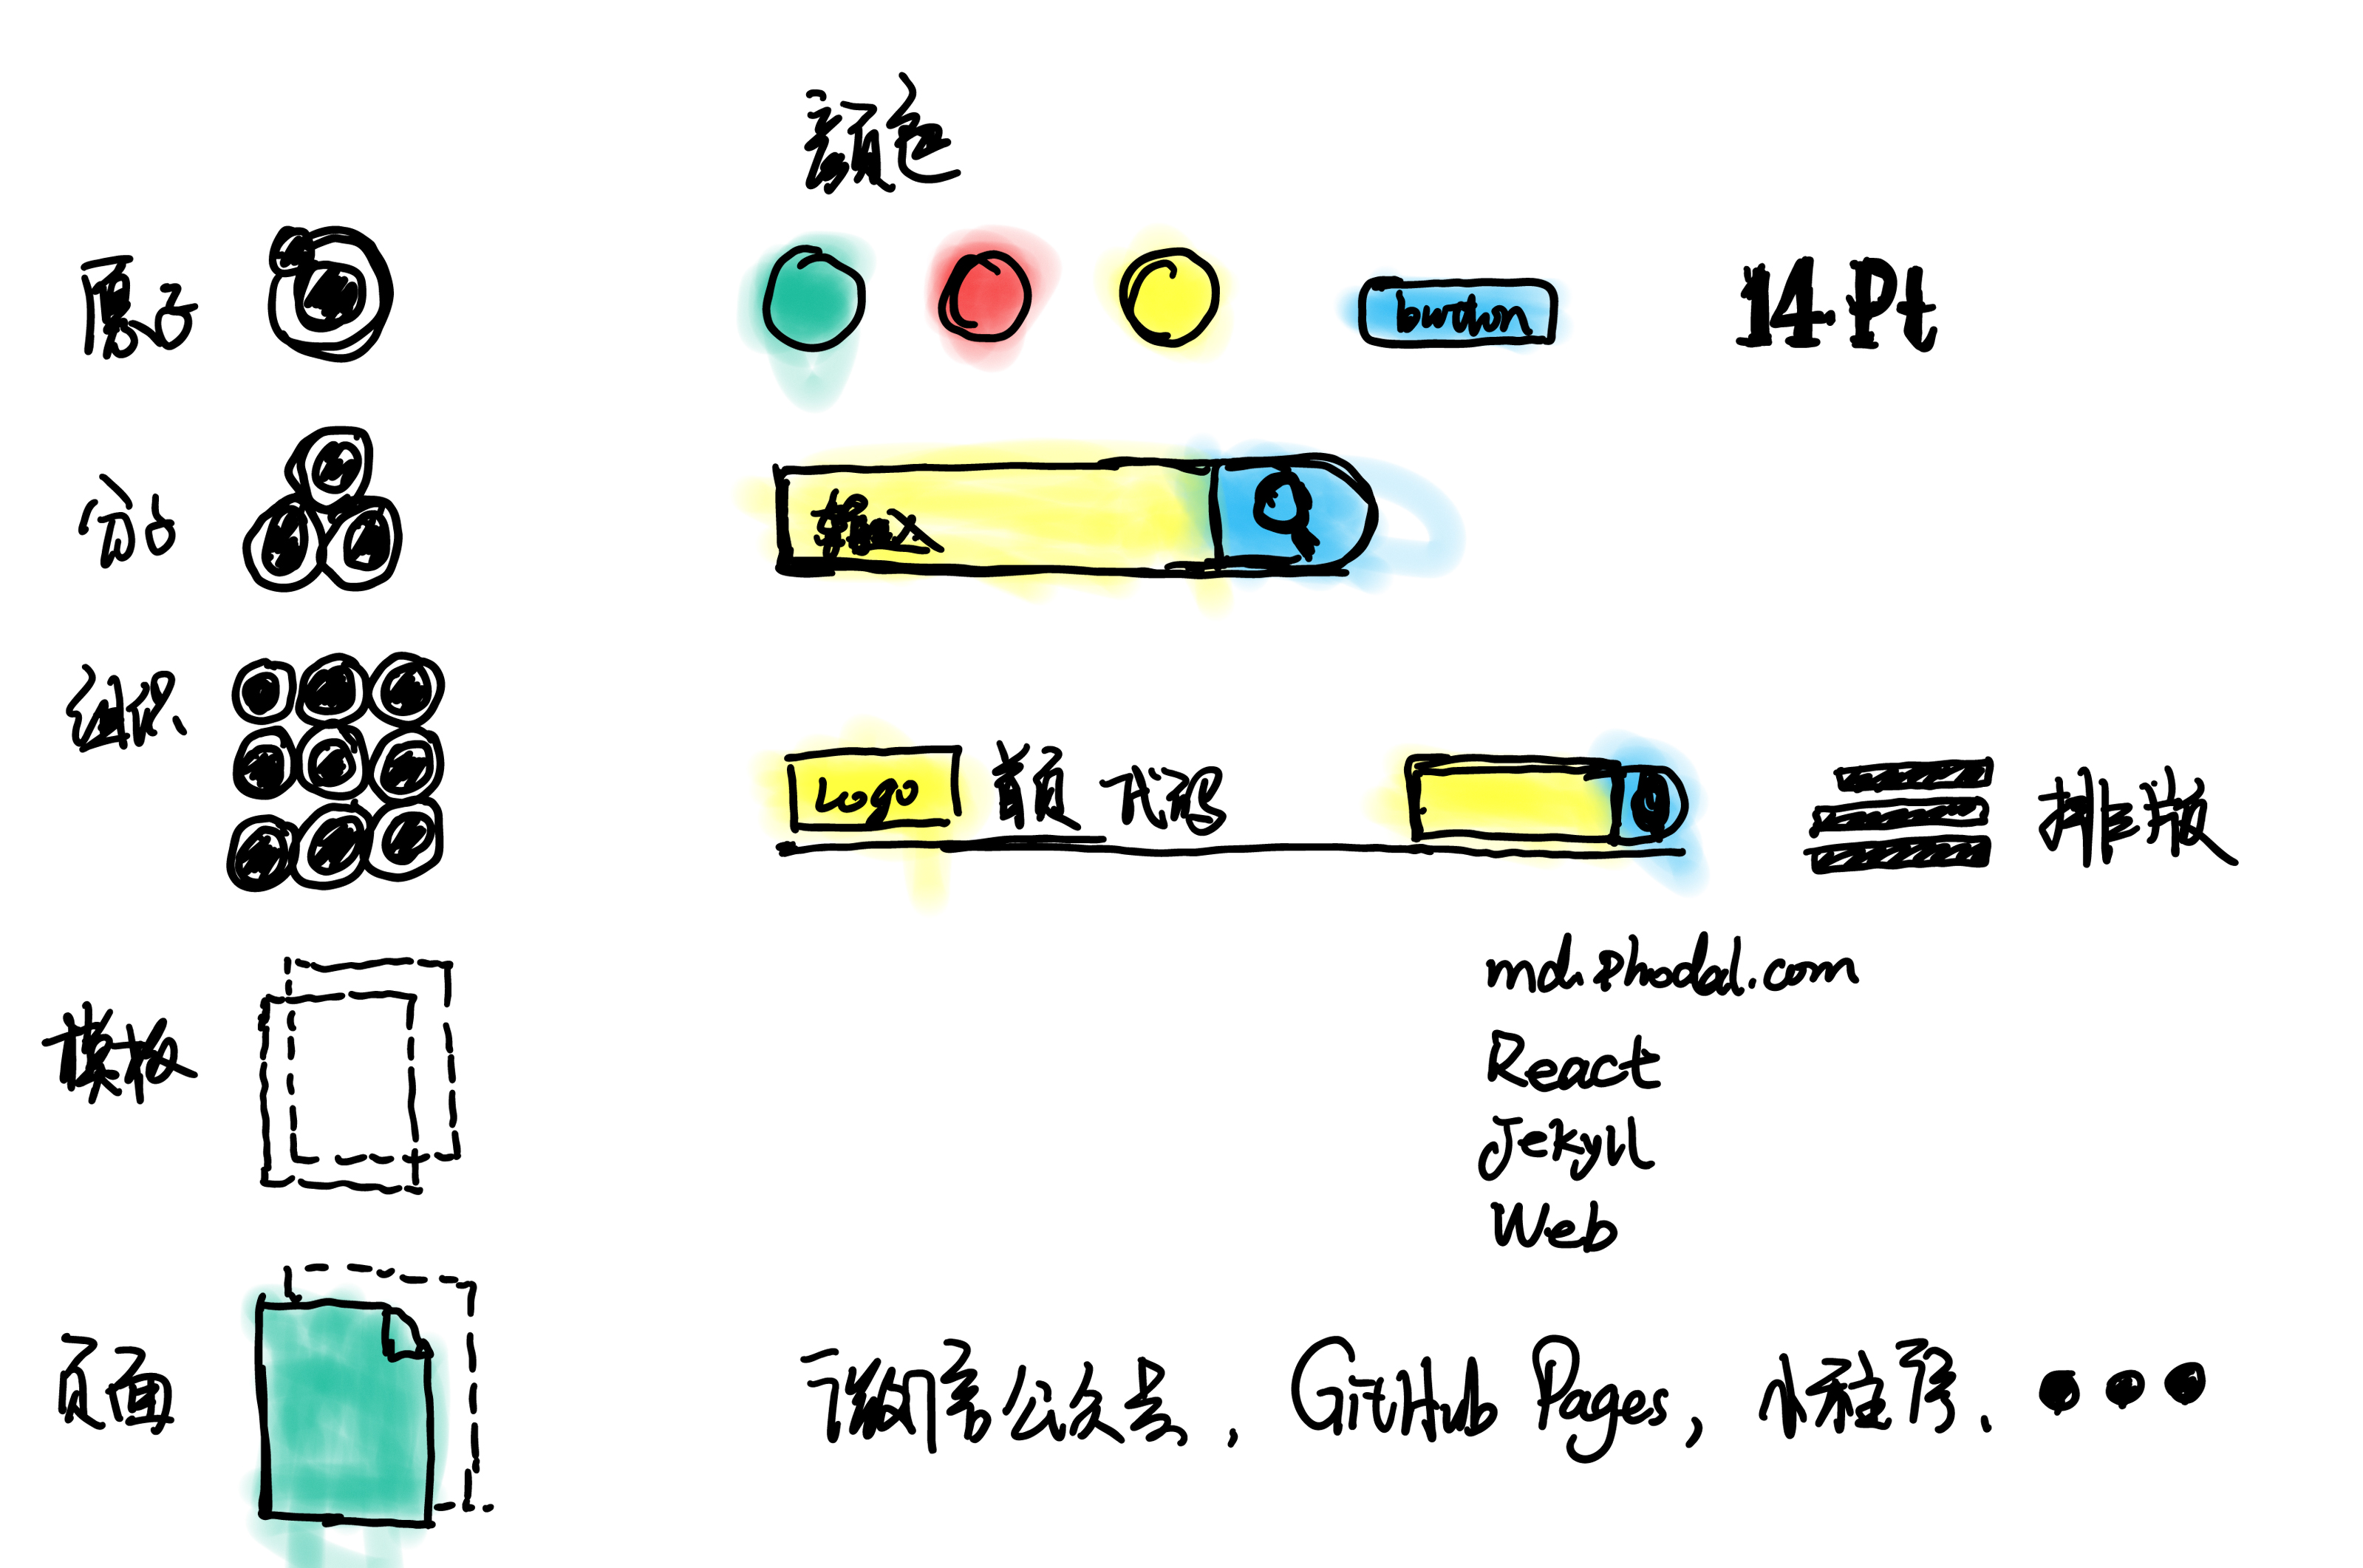 颜色
原子 button 14 Pt
分子 输入
组织 Logo 首页 代码 排版
md.phodal.com
模板 React
Jekyll
Web
页面 微信公众号, GitHub Pages, 小程序、